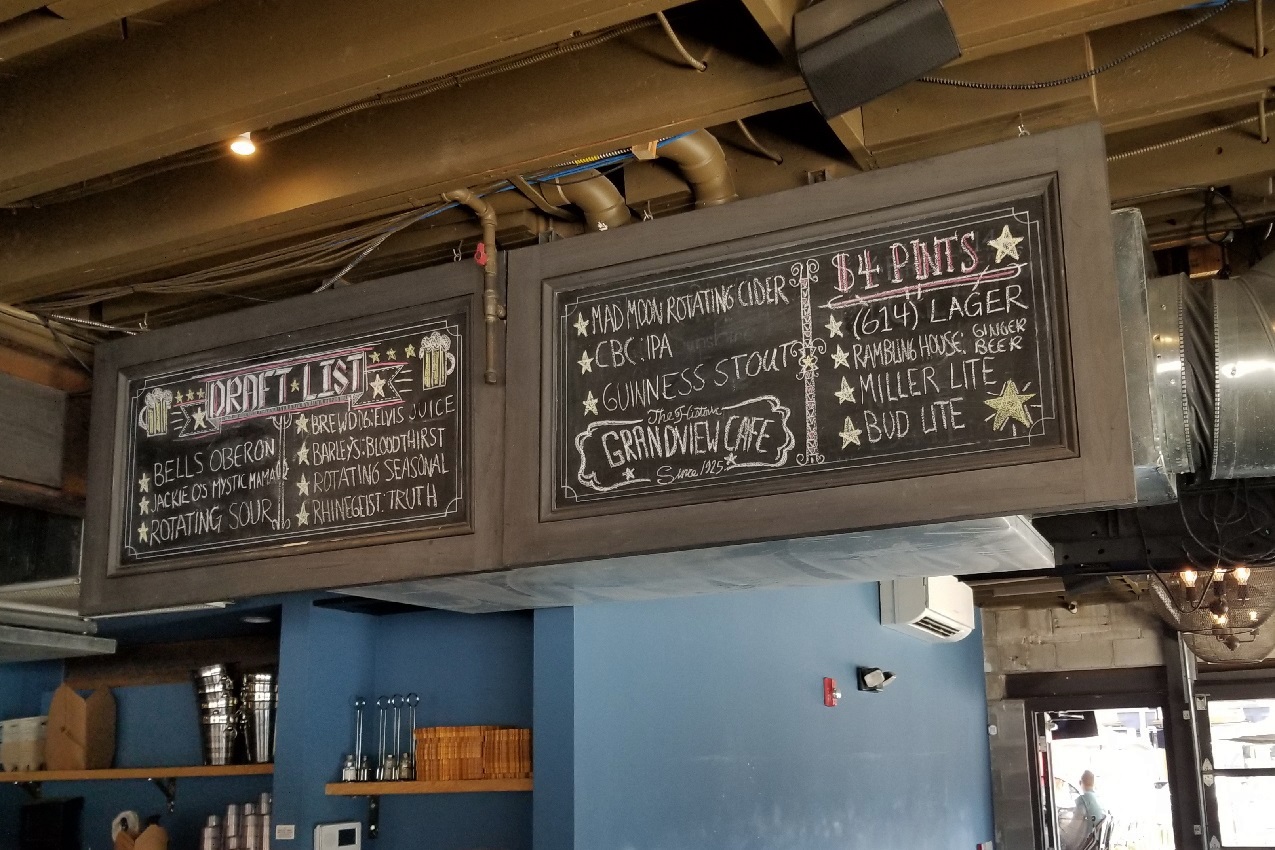 DRAFT LIST
BELLS OBERON
JACKIE O'S MYSTIC MAMA
ROTATING SOUR
BREWDOG: ELVIS JUICE
BARLEY'S: BLOODTHIRST
ROTATING SEASONAL
RHINEGEIST: TRUTH
MAD MOON ROTATING CIDER
CBC: IPA
GUINNESS STOUT
The Historic
GRANDVIEW CAFE
Since 1925
$4 PINTS
(614) LAGER
RAMBLING HOUSE: GINGER
BEER
MILLER LITE
BUD LITE